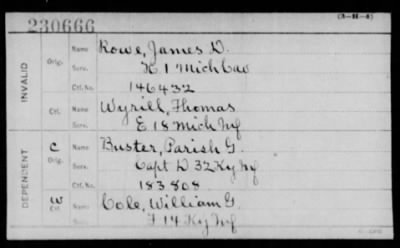 230666
(3-H-5)
INVALID
Orig. Name Rowe, James D.
Serv. K 1 Mich Cav
Ctf. No. 146432
Ctf. Name Wyrill, Thomas
E 18 Mich Inf
DEPENDENT
C Orig. Name Buster, Parish G.
Serv. Capt D 32 Ky Inf
Ctf. No. 183808
W Ctf. Name Cole, William G.
F 14 Ky Inf